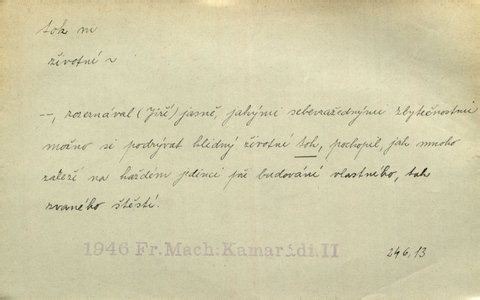 tok m
životní ~
--, rozeznával (Jiří) jasně, jakými sebevražednými zbytečnostmi
možno si podrývat klidný životní tok, pochopil, jak mnoho
záleží na každém jedinci při budování vlastního, tak
zvaného štěstí.
1946 Fr.Mach:Kamarádi.II
246,13